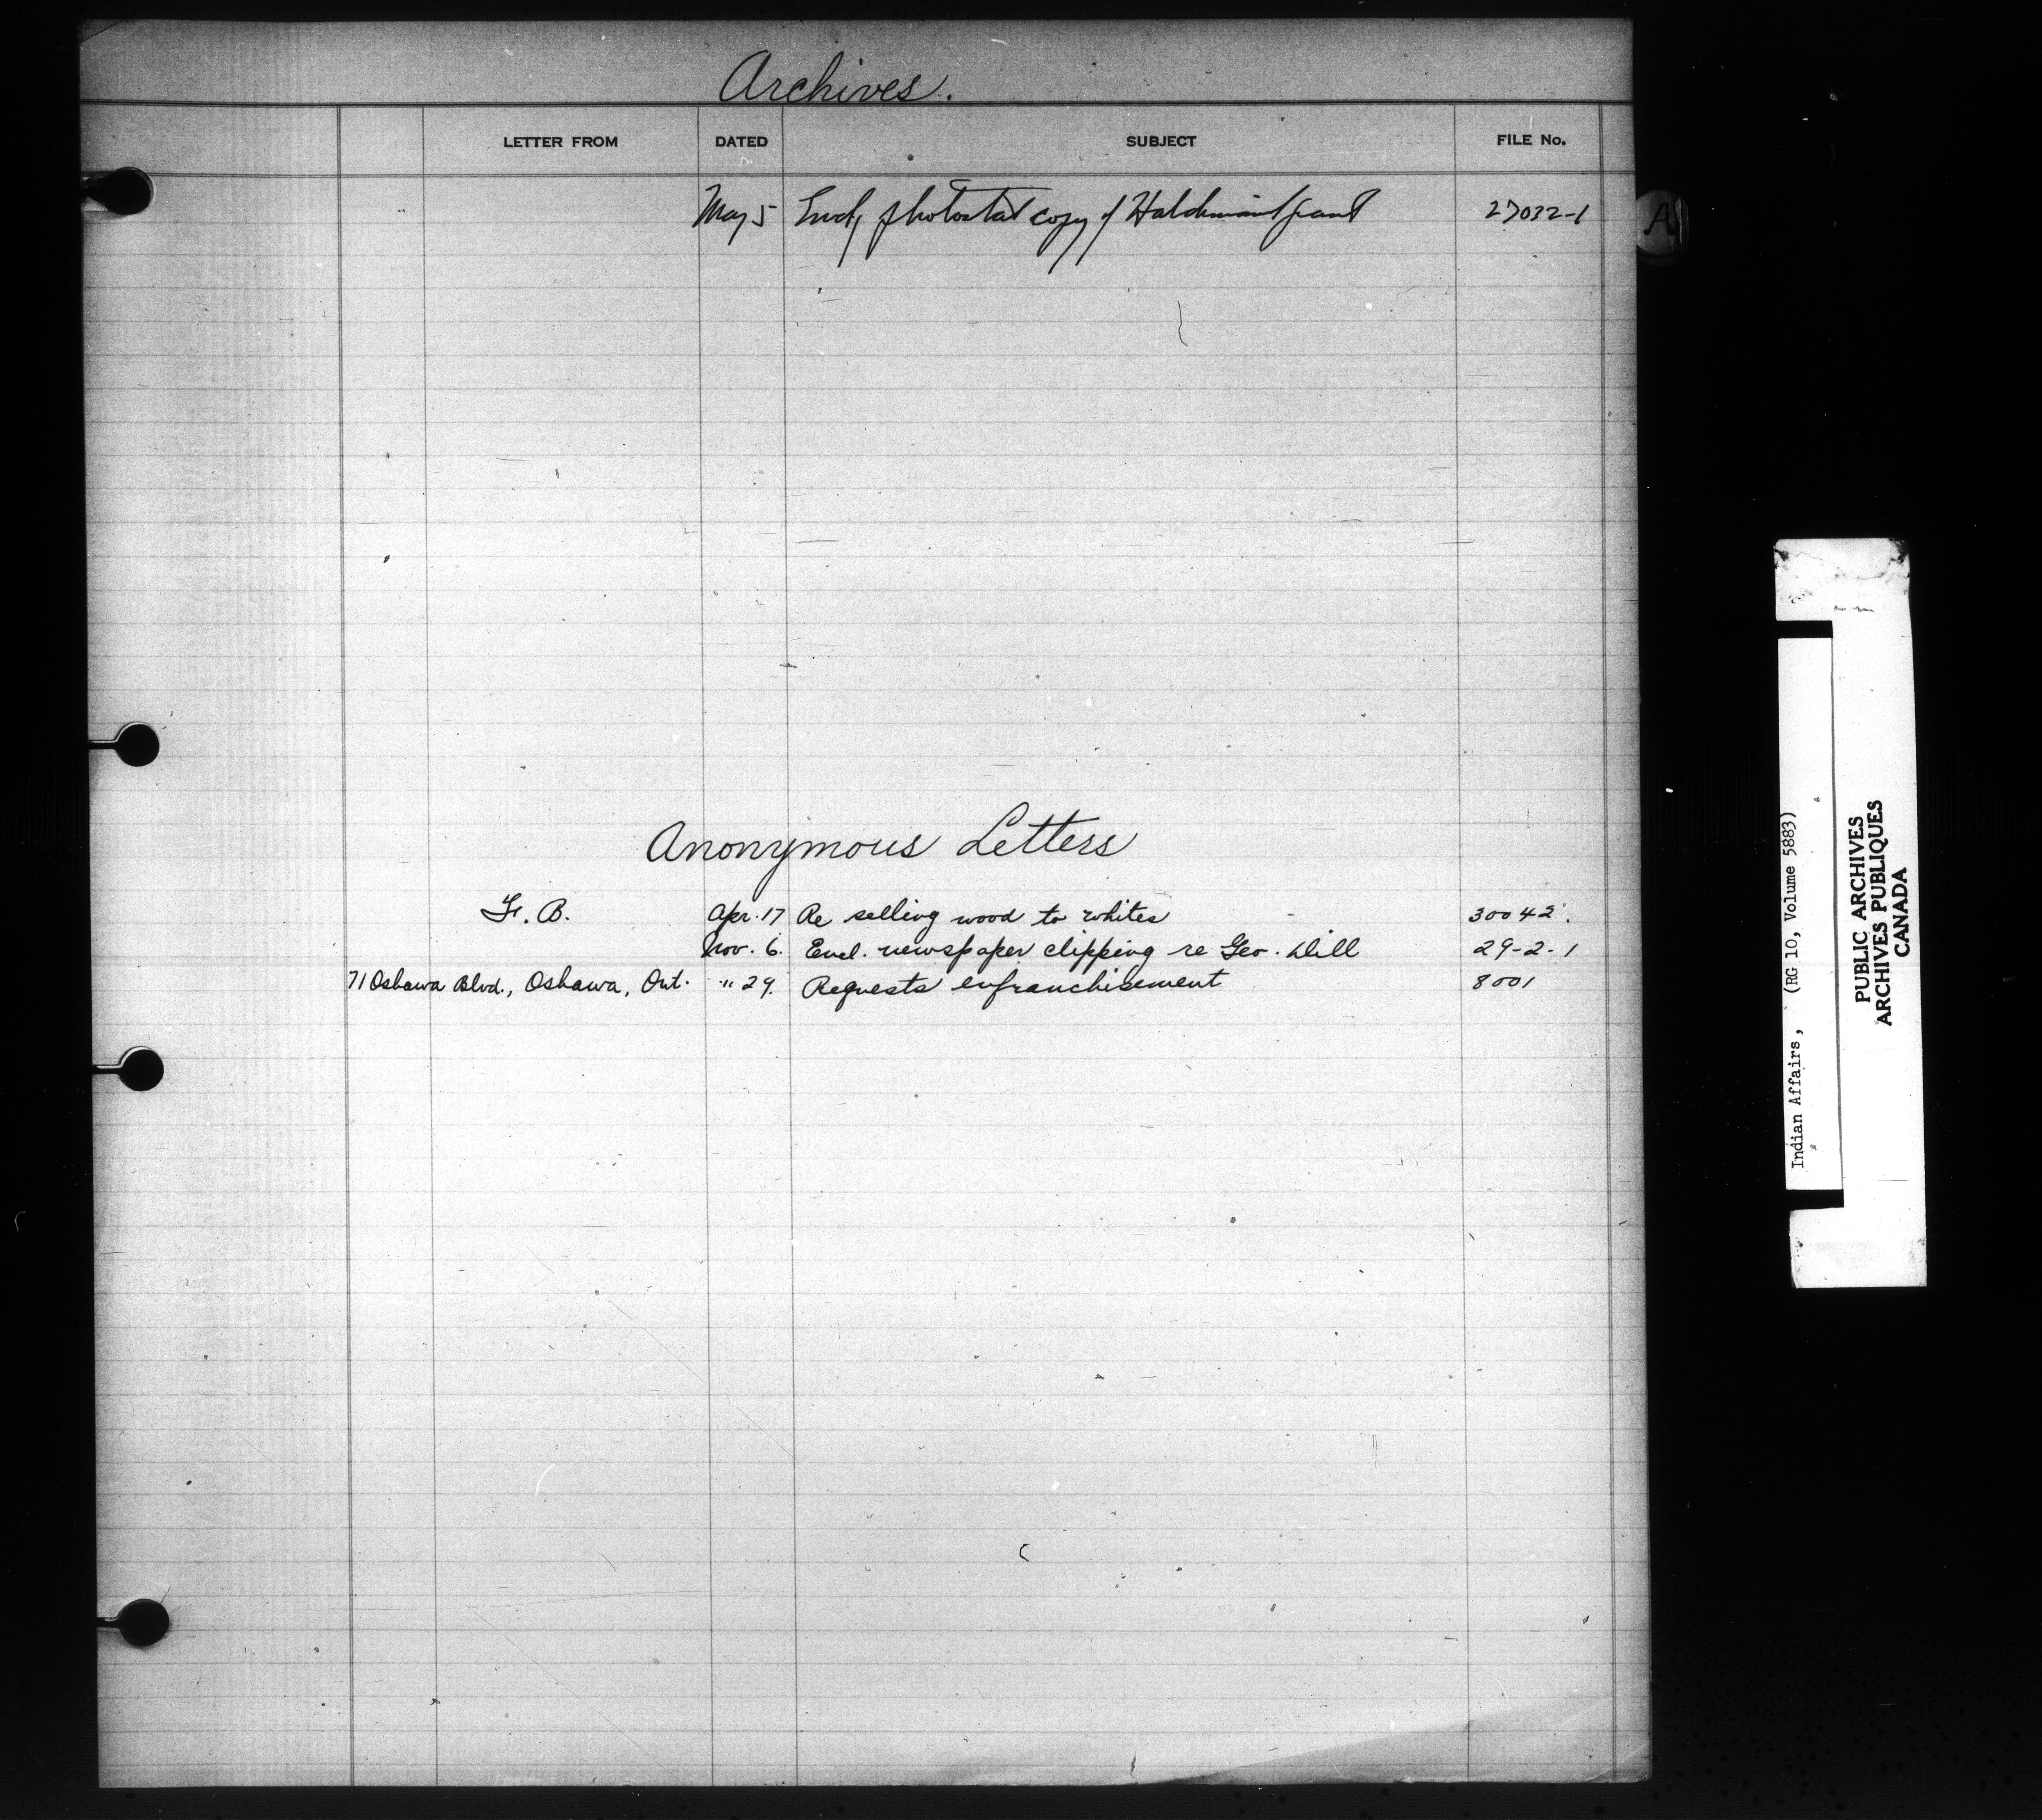 Archives.
LETTER FROM DATED SUBJECT FILE No.
May 5 photostat copy of Haldimand grant 27032-1
A
Anonymous Letters
F. B. Apr. 17 Re selling wood to whites 30042.
Nov. 6. Encl. newspaper clipping re Geo. Dill 29-2-1
71 Oshawa Blvd., Oshawa, Ont. " 29. Requests enfranchisement 8001
Indian Affairs, (RG 10, Volume 5883)
PUBLIC ARCHIVES
ARCHIVES PUBLIQUES
CANADA